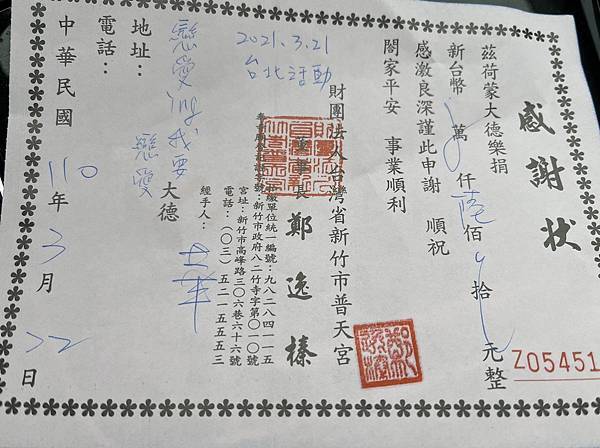 感謝狀
茲荷蒙大德樂捐
新台幣 萬 仟陸佰 拾 元整
感激良深謹此申謝 順祝
闔家平安 事業順利
2021.3.21
台北活動
財團法人台灣省新竹市普天宮
董事長 鄭逸榛
扣繳單位統一編號：九八二八四一一五
新竹市政府八二竹寺字第〇一〇號
宮址：新竹市高峰路三〇六巷六十六號
電話：（〇三）五二一五五五三
經手人：
戀愛ing我要
戀愛 大德
地址：
電話：
中華民國 110 年 3 月 22 日
Z05451